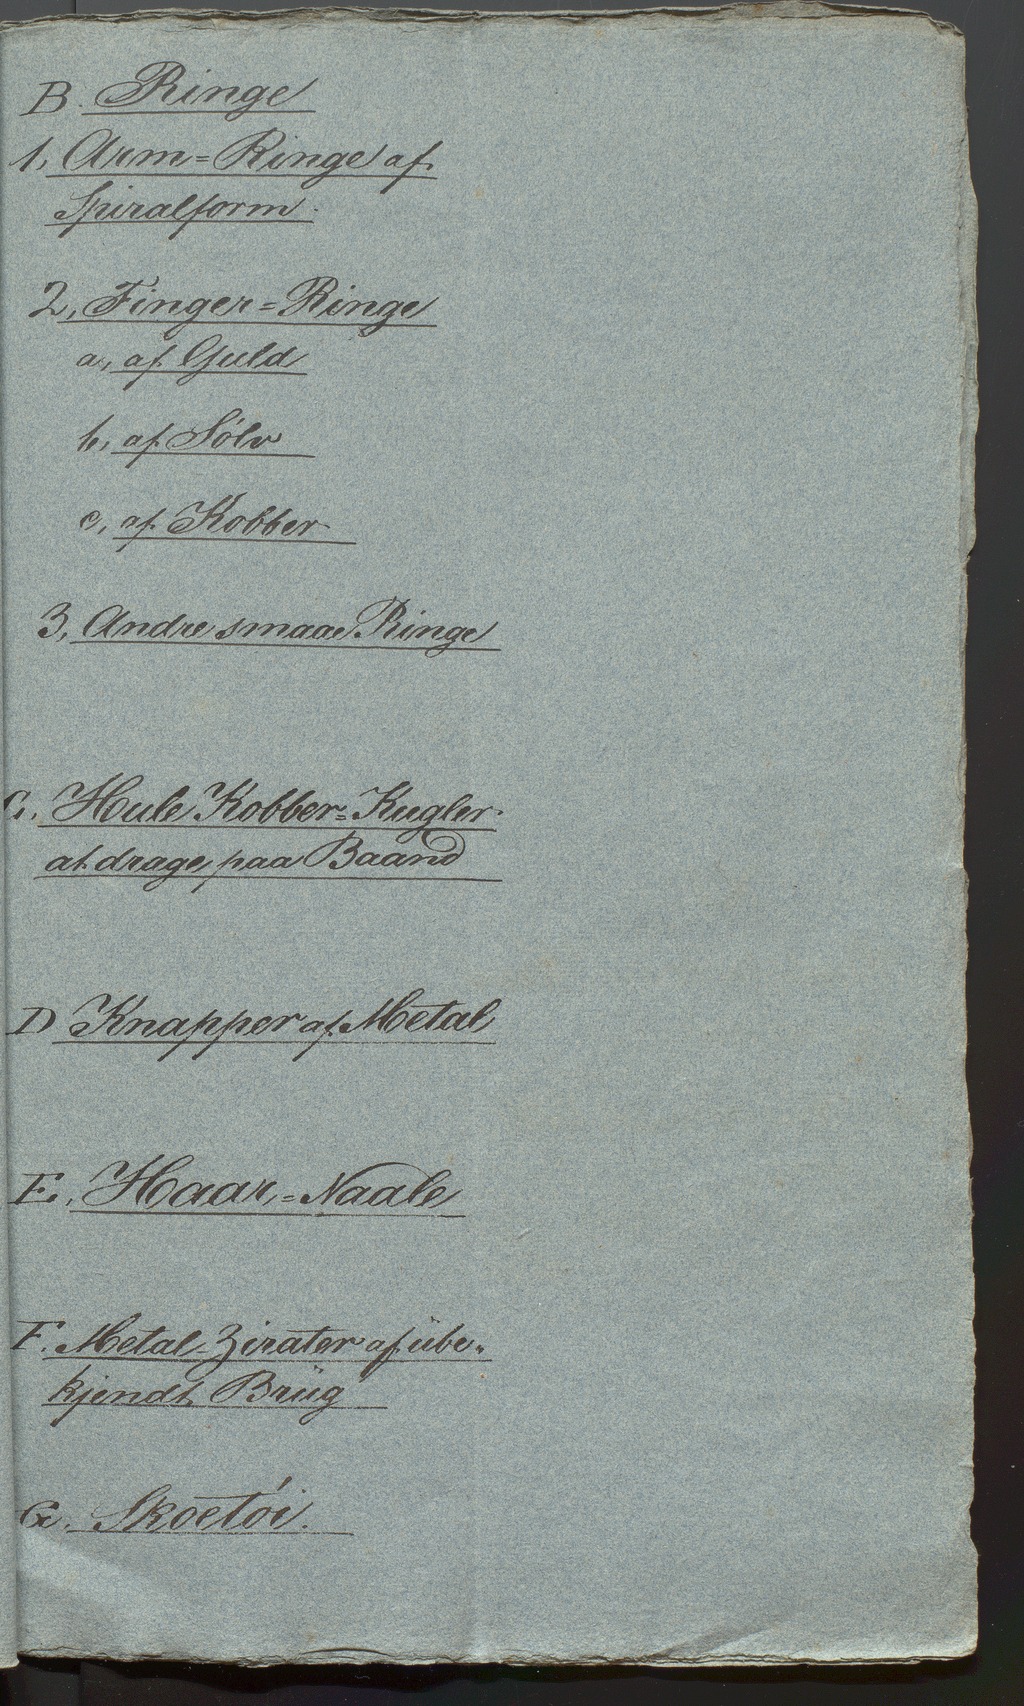 B. Ringe
1, Arm=Ringe af
Spiralform.
2, Finger=Ringe
a, af Guld
b, af Sölv
c, af Kobber
3, Andre smaae Ringe
C. Hule Kobber=Kugler
at drage paa Baand
D Knapper af Metal
E, Haar=Naale
F. Metal-Zirater af ube=
kjendt Brug
G. Skoetöi.